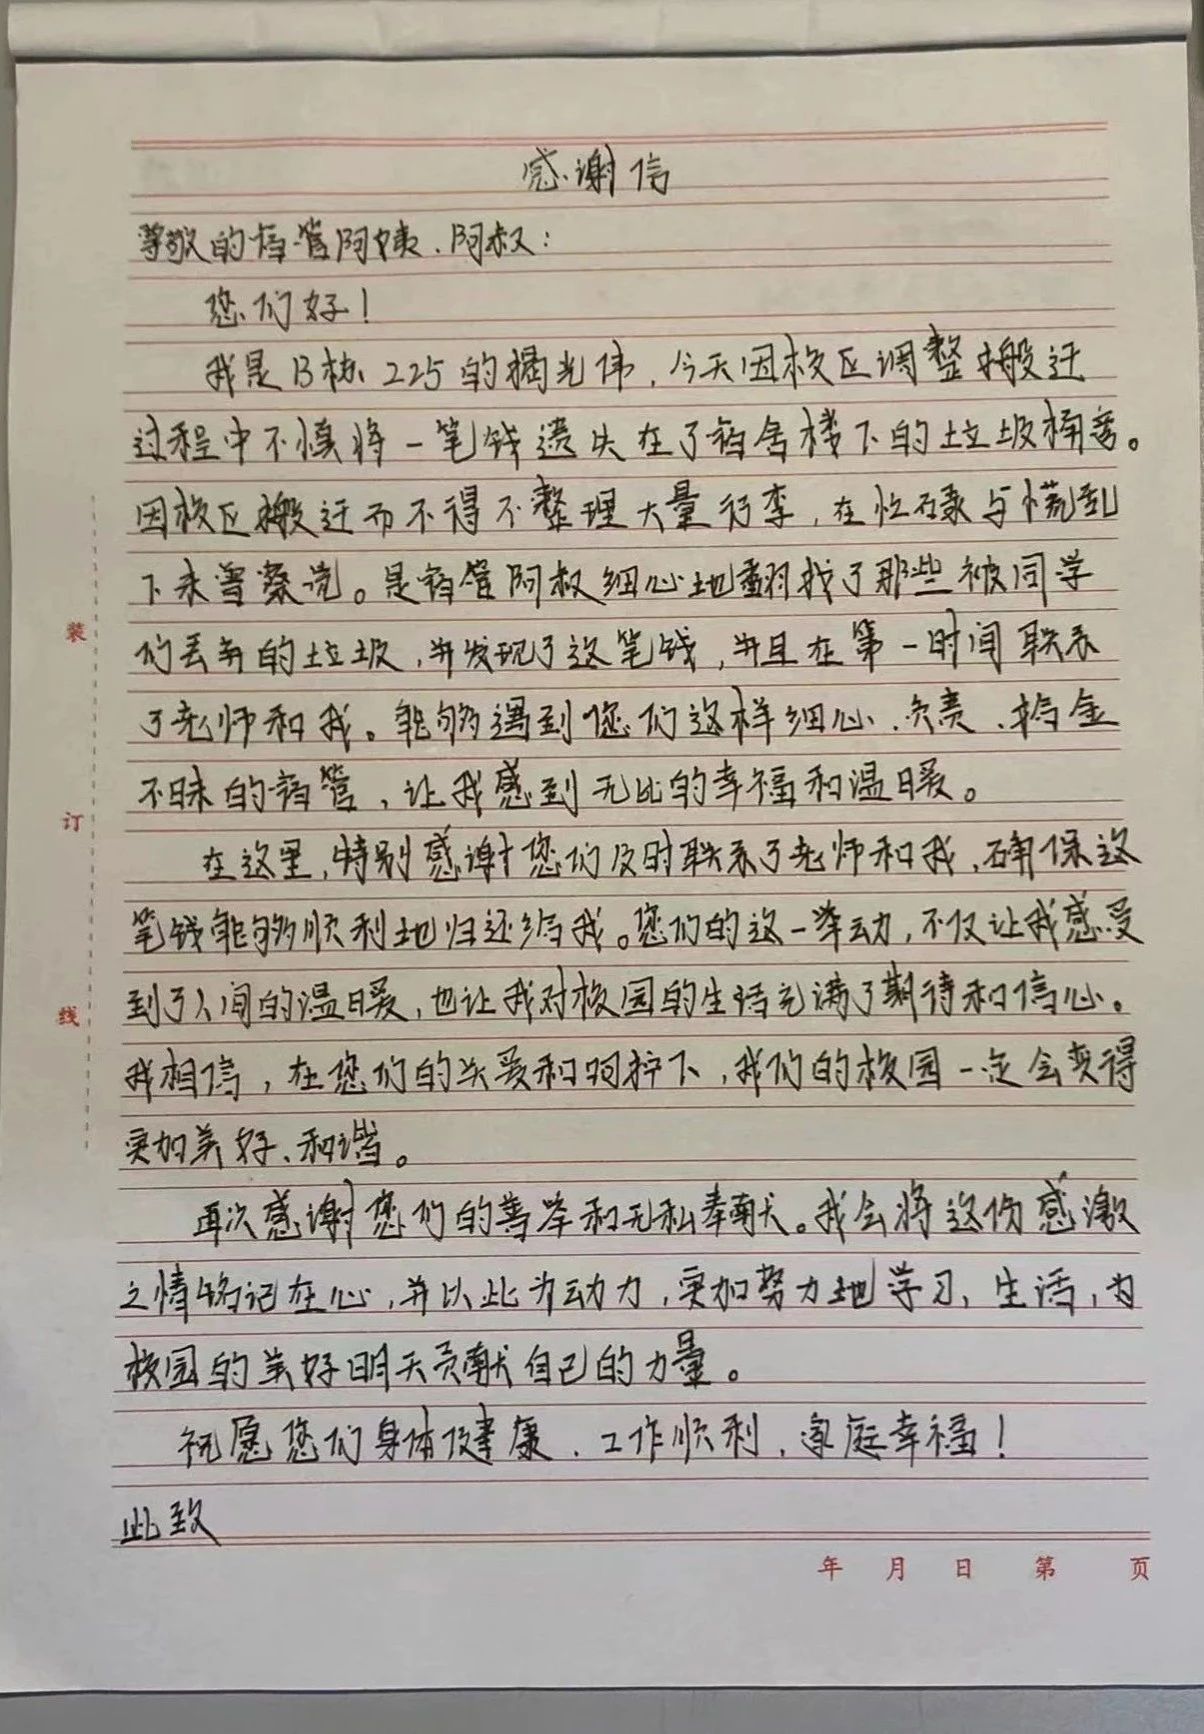 感谢信
尊敬的宿管阿姨、阿叔：
您们好！
我是B栋225的橘光伟，今天因校区调整搬迁
过程中不慎将一笔钱遗失在了宿舍楼下的垃圾桶旁。
因校区搬迁而不得不整理大量行李，在忙碌与慌乱
下未曾察觉。是宿管阿叔细心地翻找了那些被同学
们丢弃的垃圾，并发现了这笔钱，并且在第一时间联系
了老师和我。能够遇到您们这样细心、负责、拾金
不昧的宿管，让我感到无比的幸福和温暖。
在这里，特别感谢您们及时联系了老师和我，确保这
笔钱能够顺利地归还给我。您们的这一举动，不仅让我感受
到了人间的温暖，也让我对校园的生活充满了期待和信心。
我相信，在您们的关爱和呵护下，我们的校园一定会变得
更加美好、和谐。
再次感谢您们的善举和无私奉献。我会将这份感激
之情铭记在心，并以此为动力，更加努力地学习、生活，为
校园的美好明天贡献自己的力量。
祝愿您们身体健康、工作顺利、家庭幸福！
此致
装
订
线
年 月 日 第 页